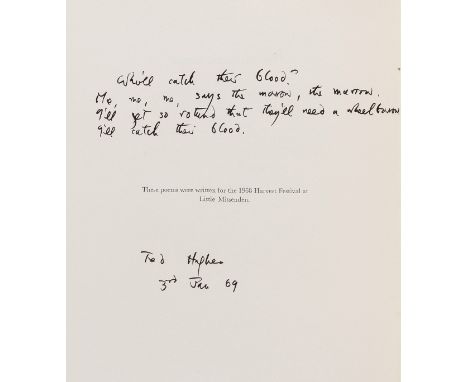 Who'll catch their blood?
Me, me, me, says the marrow, the marrow.
I'll get so rotund that they'll need a wheelbarrow
I'll catch their blood.
These poems were written for the 1968 Harvest Festival at
Little Missenden.
Ted Hughes
3rd Jan 69